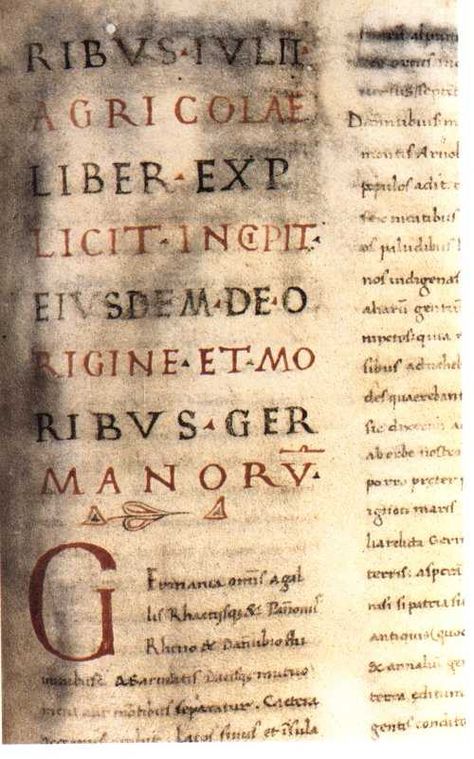 RIBVS·IVLII·
AGRICOLAE
LIBER·EXP
LICIT·INCIPIT·
EIVSDEM·DE·O
RIGINE·ET·MO
RIBVS·GER
MANORV̄·
Germania omīs agal
lis Rhaetisq; & Pānoniis
Rheno & Danubio flu
minibus. ASarmatis Dacisq; mutuo
metu aut montibus separatur. Caetera
Latos sinus et īsula
Danubius m
montis Arnob
populos adit
sex meatibus
os paludibus
nos indigenas
aliarū gentiū
sibus aduehe
des quaerebant
sic dixerim
ab orbe nostro
porro preter
ignoti maris
lia relicta Germ
terris: asperā
nisi si patria si
antiquis (quod
& annaliū ge
terra editum
gentis condito